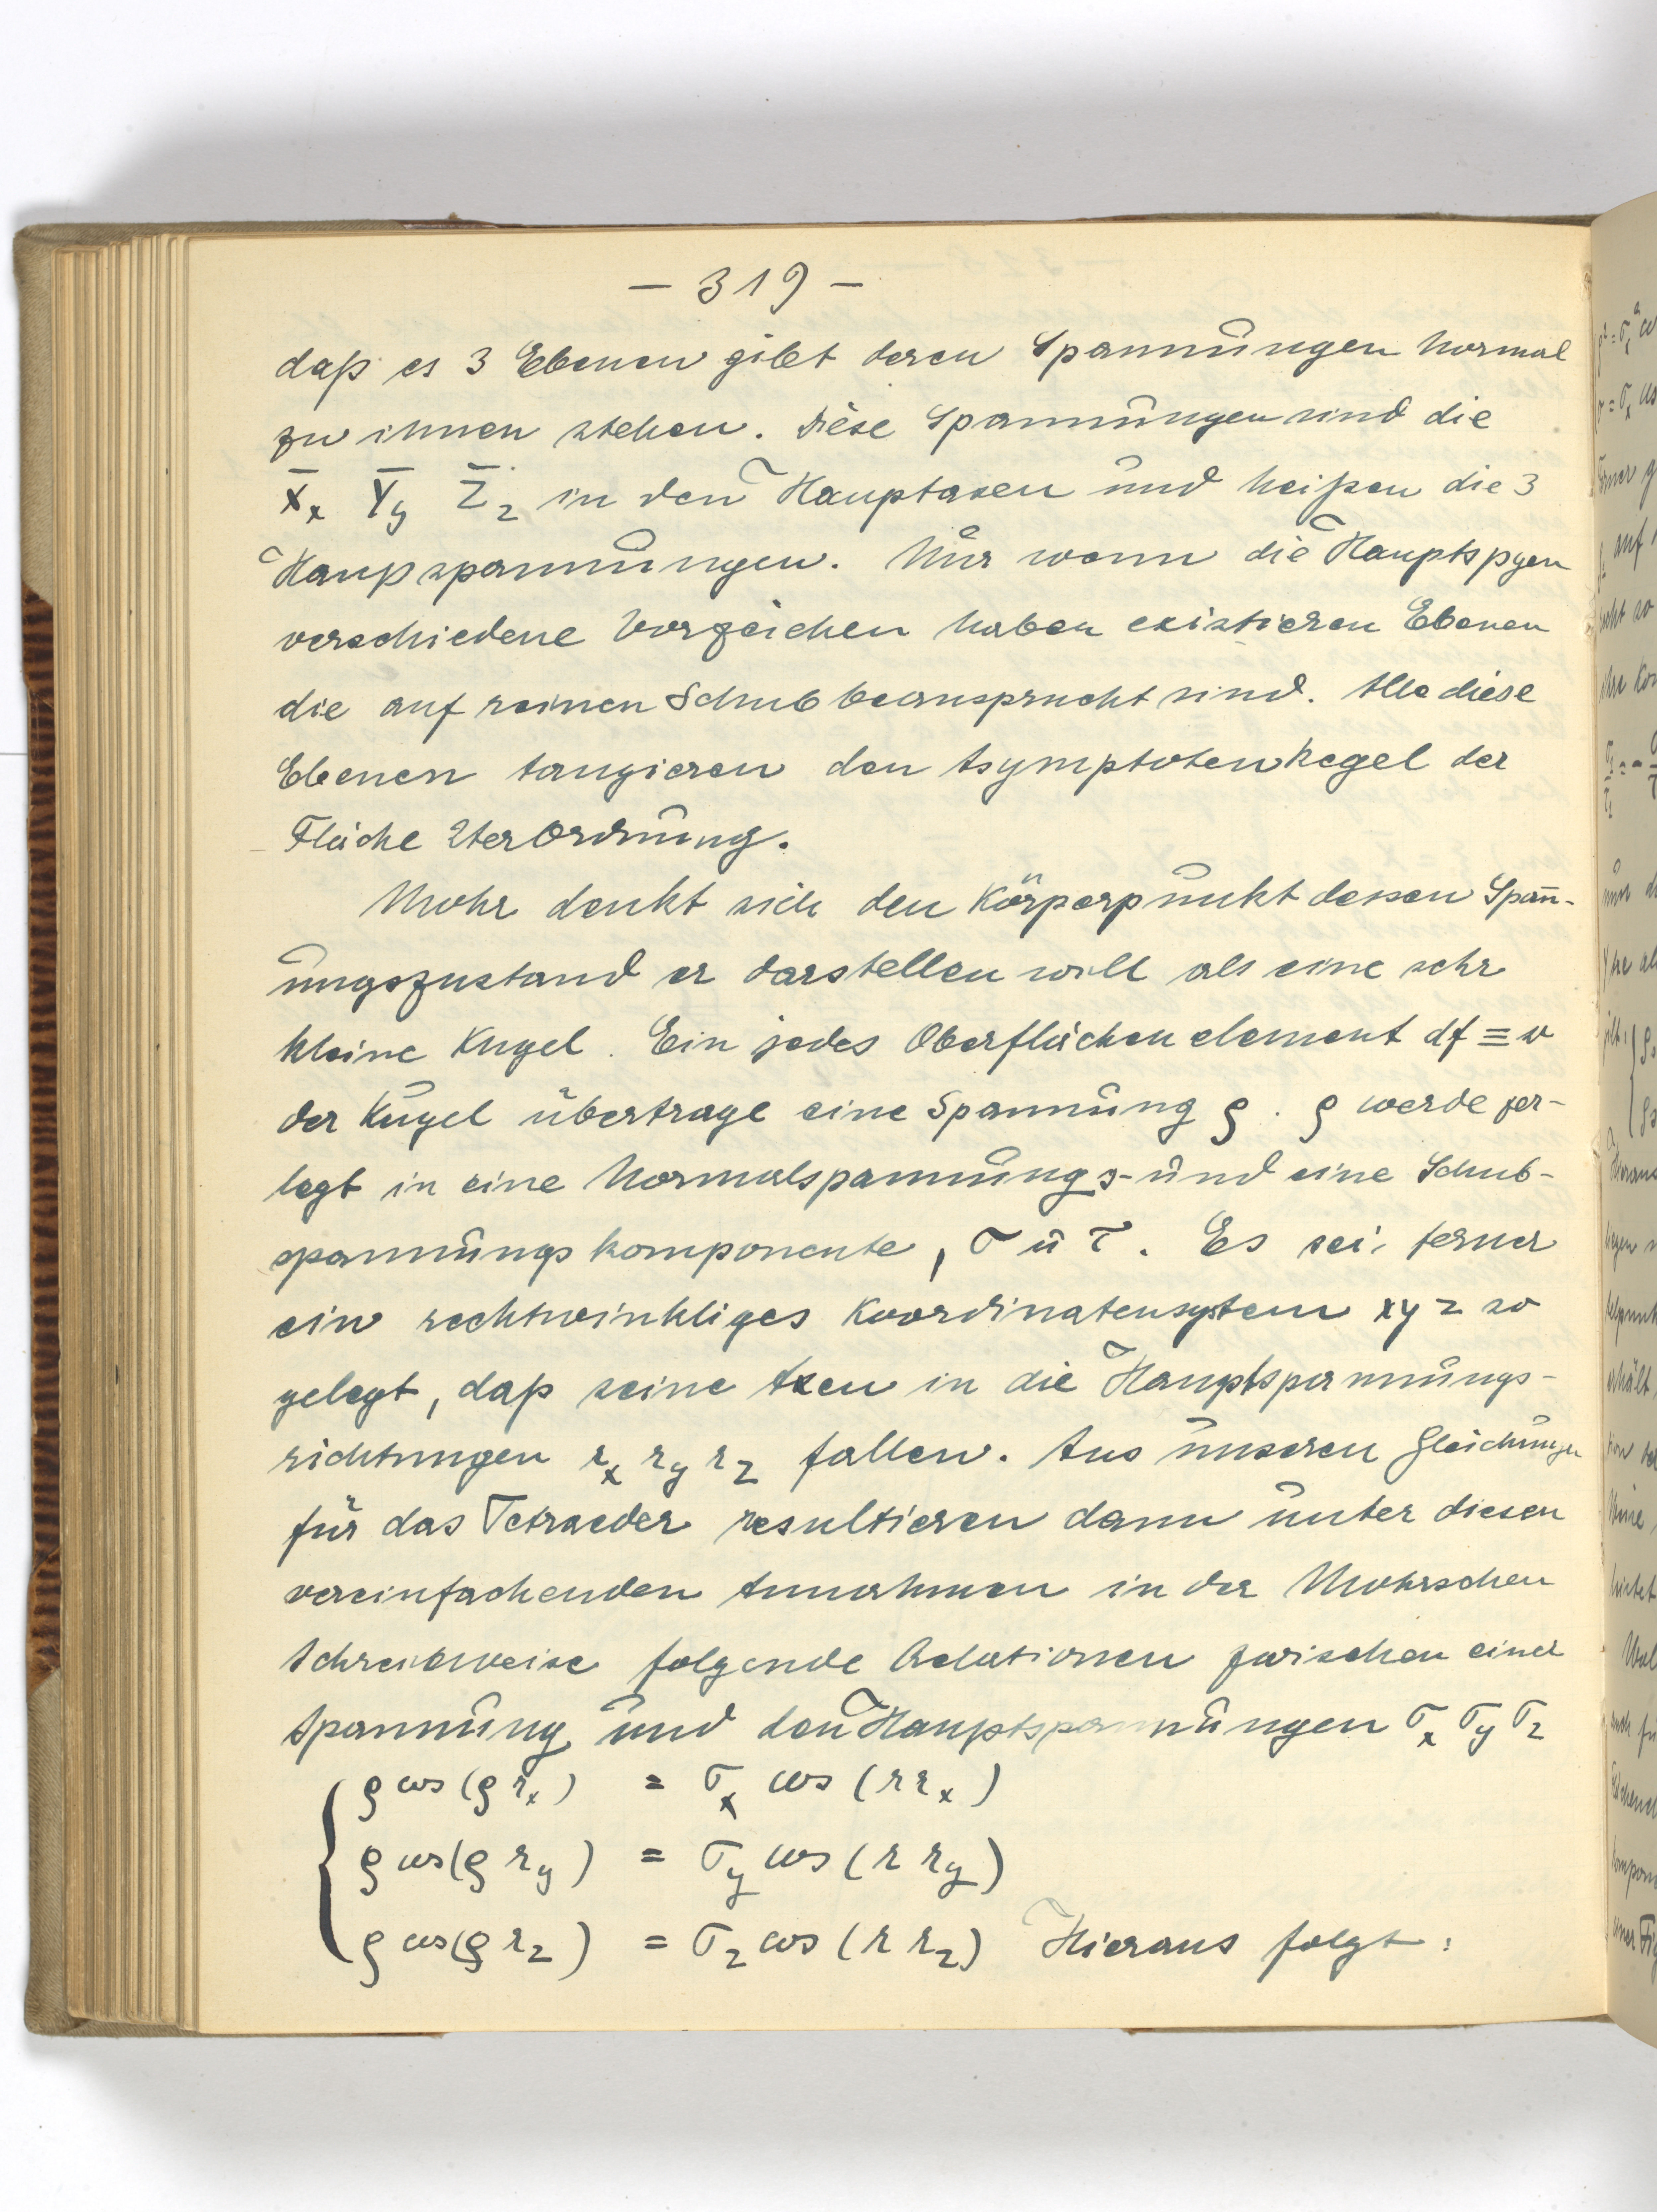 – 319 –
daß es 3 Ebenen gibt deren Spannungen normal
zu ihnen stehen. Diese Spannungen sind die
X̄x Ȳy Z̄z in den Hauptaxen und heißen die 3
Haupspannungen. Nur wenn die Hauptspgen
verschiedene Vorzeichen haben existieren Ebenen
die auf reinen Schub beansprucht sind. Alle diese
Ebenen tangieren den Asymptotenkegel der
Fläche 2ter Ordnung.
Mohr denkt sich den Körperpunkt dessen Span̄-
ungszustand er darstellen will als eine sehr
kleine Kugel. Ein jedes Oberflächenelement df ≡ w
der Kugel übertrage eine Spannung ϱ. ϱ werde zer-
legt in eine Normalspannungs- und eine Schub-
spannungskomponente, σ u τ. Es sei ferner
ein rechtwinkliges Koordinatensystem xyz so
gelegt, daß seine Axen in die Hauptspannungs-
richtungen rx ry rz fallen. Aus unseren Gleichungen
für das Tetraeder resultieren dann unter diesen
vereinfachenden Annahmen in der Mohrschen
Schreibweise folgende Relationen zwischen einer
Spannung und den Hauptspannungen σx σy σz
ϱ cos(ϱ rx) = σx cos(r rx)
ϱ cos(ϱ ry) = σy cos(r ry)
ϱ cos(ϱ rz) = σz cos(r rz) Hieraus folgt: